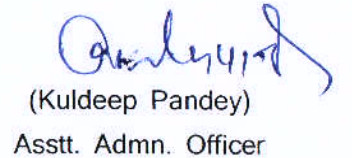 (Kuldeep Pandey)
Asstt. Admn. Officer